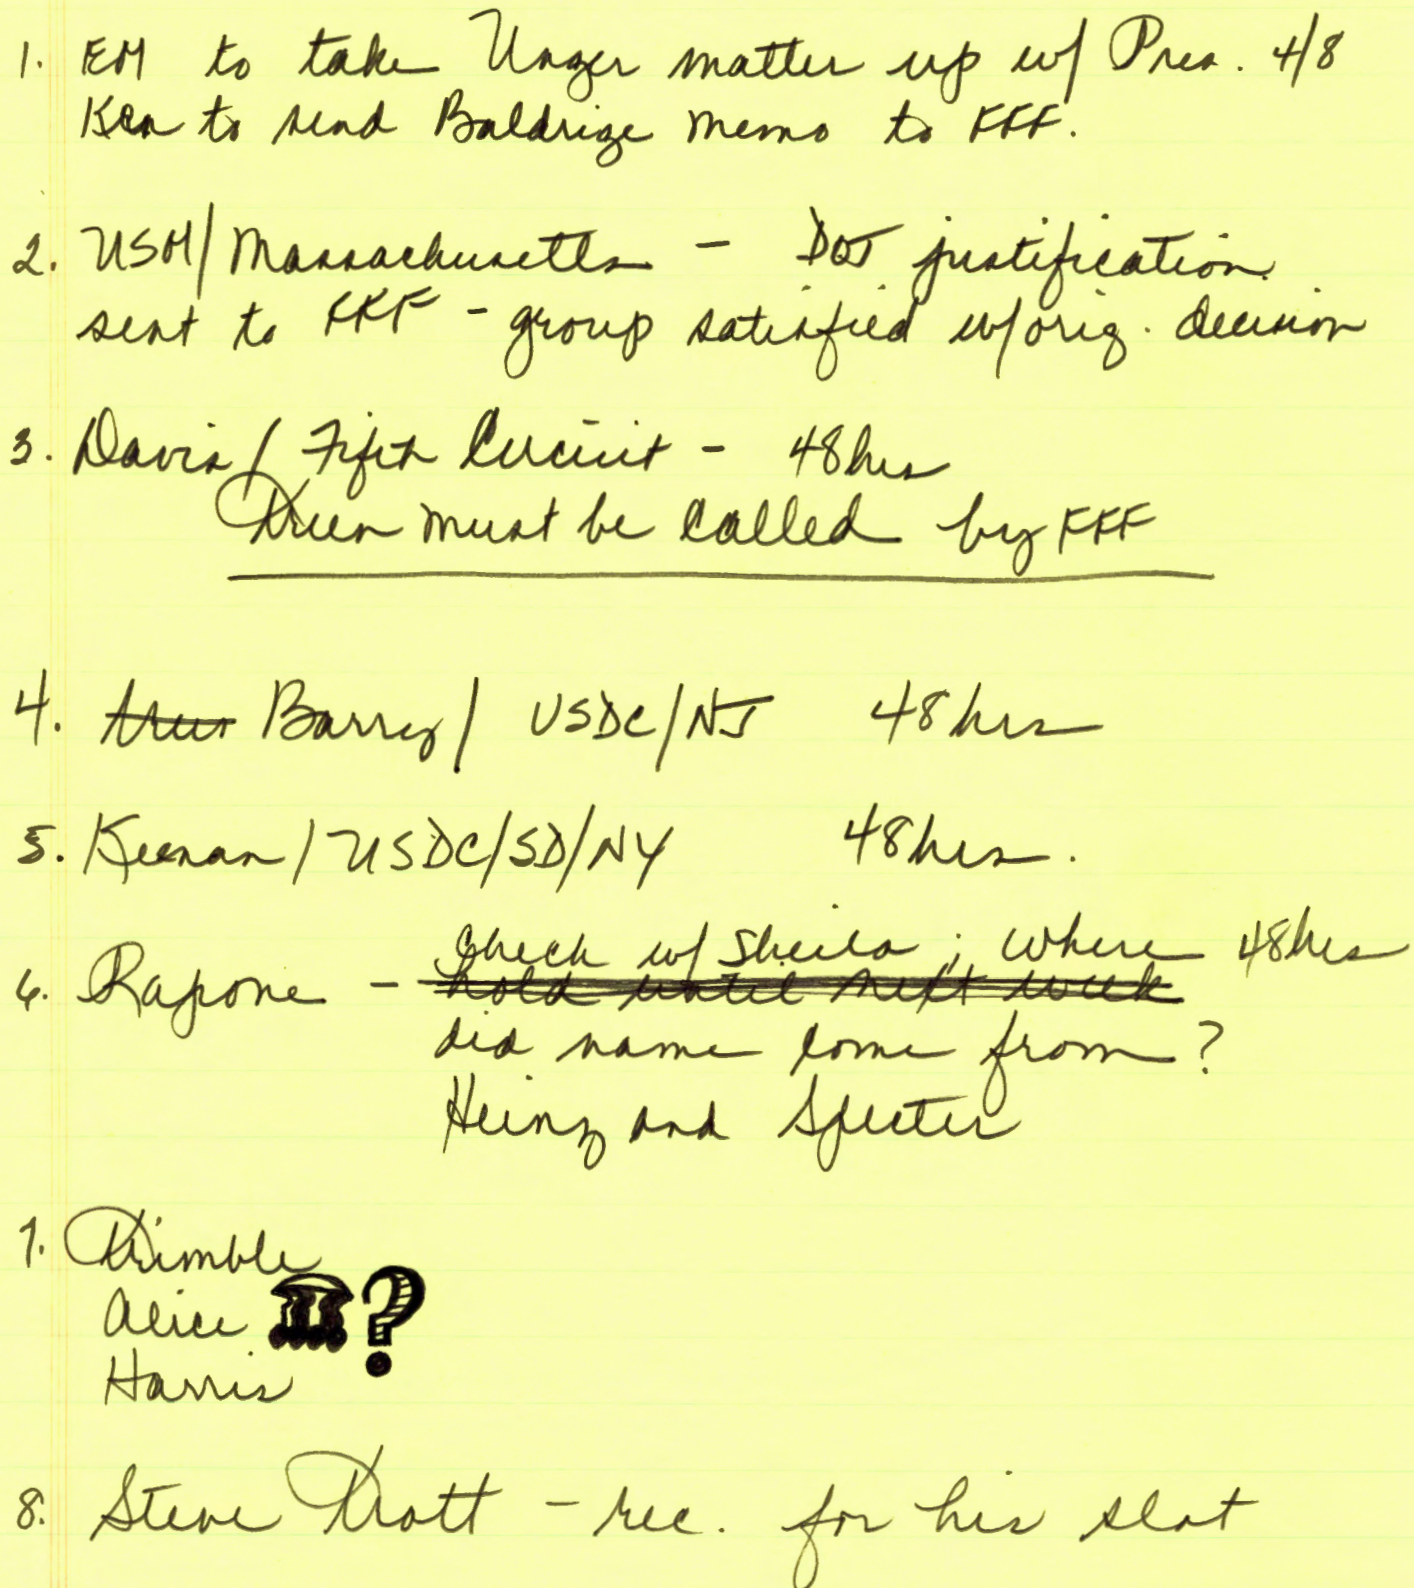 1. EM to take Unger matter up w/ Pres. 4/8
Ken to send Baldrige memo to FFF.
2. USM/Massachusetts - DOJ justification
sent to FFF - group satisfied w/orig. decision
3. Davis / Fifth Circuit - 48hrs
Treen must be called by FFF
4. Barry / USDC/NJ 48 hrs
5. Keenan / USDC/SD/NY 48hrs.
6. Rapone - check w/ Sheila; where 48hrs
hold until next week
did name come from?
Heinz and Specter
7. Trimble
Alice ?
Harris
8. Steve Trott - rec. for his slot